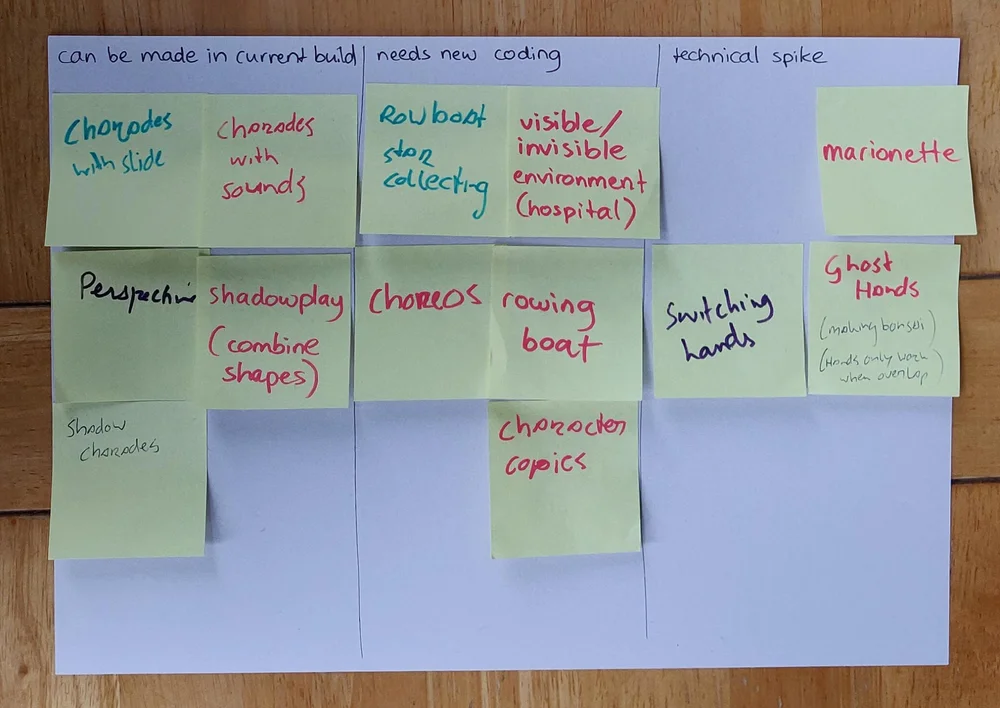 can be made in current build
needs new coding
technical spike
Charades
with slide
Charades
with
sounds
Rowboat
star
collecting
visible/
invisible
environment
(hospital)
marionette
Perspective
shadowplay
(combine
shapes)
choreos
rowing
boat
Switching
hands
Ghost
Hands
(making bonsai)
(Hands only work
when overlap)
Shadow
charades
character
copies